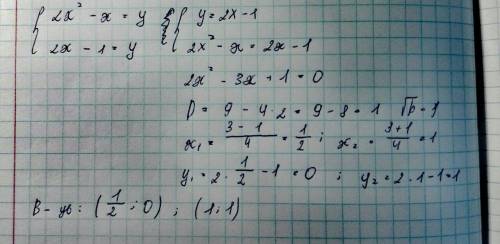 { 2x² - x = y   { y = 2x - 1
{ 2x - 1 = y   { 2x² - x = 2x - 1
2x² - 3x + 1 = 0
D = 9 - 4·2 = 9 - 8 = 1   √D = 1
x₁ = (3 - 1)/4 = 1/2 ;   x₂ = (3+1)/4 = 1
y₁ = 2 · 1/2 - 1 = 0 ;   y₂ = 2·1-1=1
В-дь: (1/2 ; 0) ; (1;1)